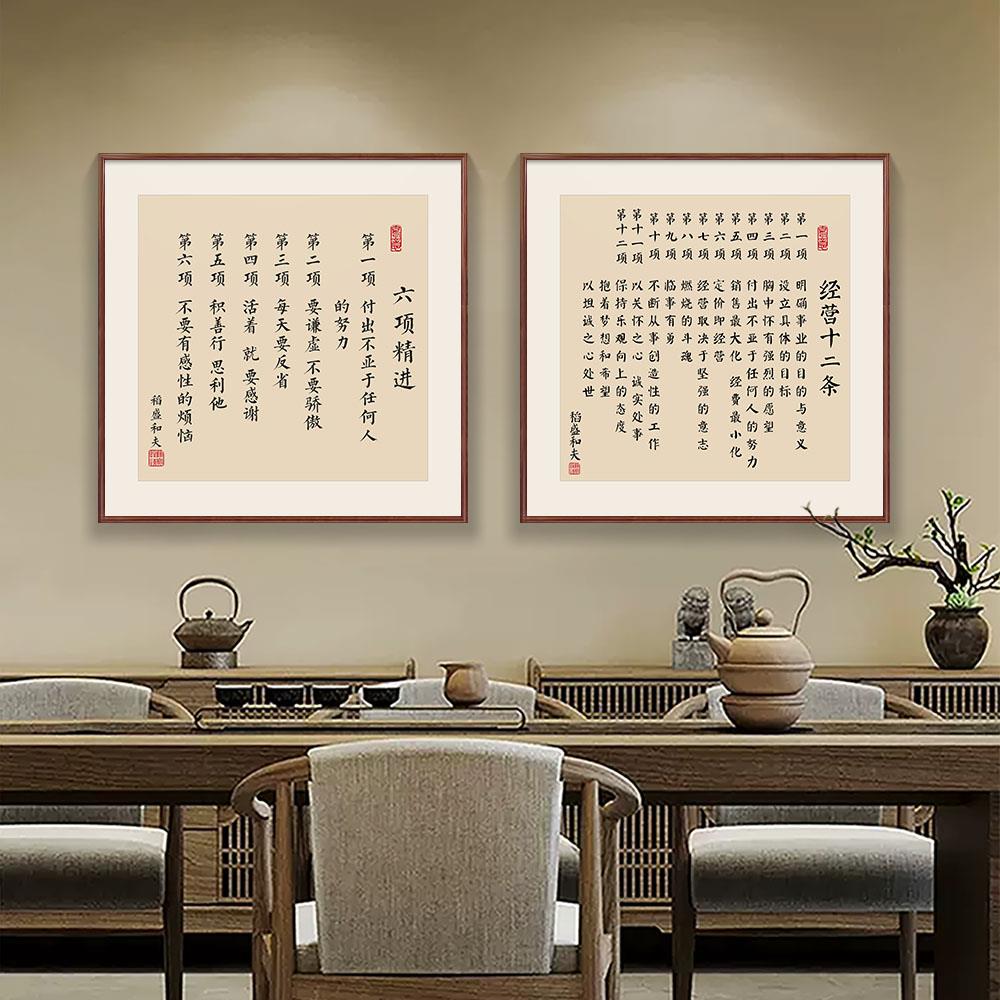 六项精进
第一项 付出不亚于任何人
的努力
第二项 要谦虚 不要骄傲
第三项 每天要反省
第四项 活着 就 要感谢
第五项 积善行 思利他
第六项 不要有感性的烦恼
稻盛和夫
经营十二条
第一项 明确事业的目的与意义
第二项 设立具体的目标
第三项 胸中怀有强烈的愿望
第四项 付出不亚于任何人的努力
第五项 销售最大化 经费最小化
第六项 定价即经营
第七项 经营取决于坚强的意志
第八项 燃烧的斗魂
第九项 临事有勇
第十项 不断从事创造性的工作
第十一项 以关怀之心 诚实处事
第十二项 保持乐观向上的态度
抱着梦想和希望
以坦诚之心处世
稻盛和夫